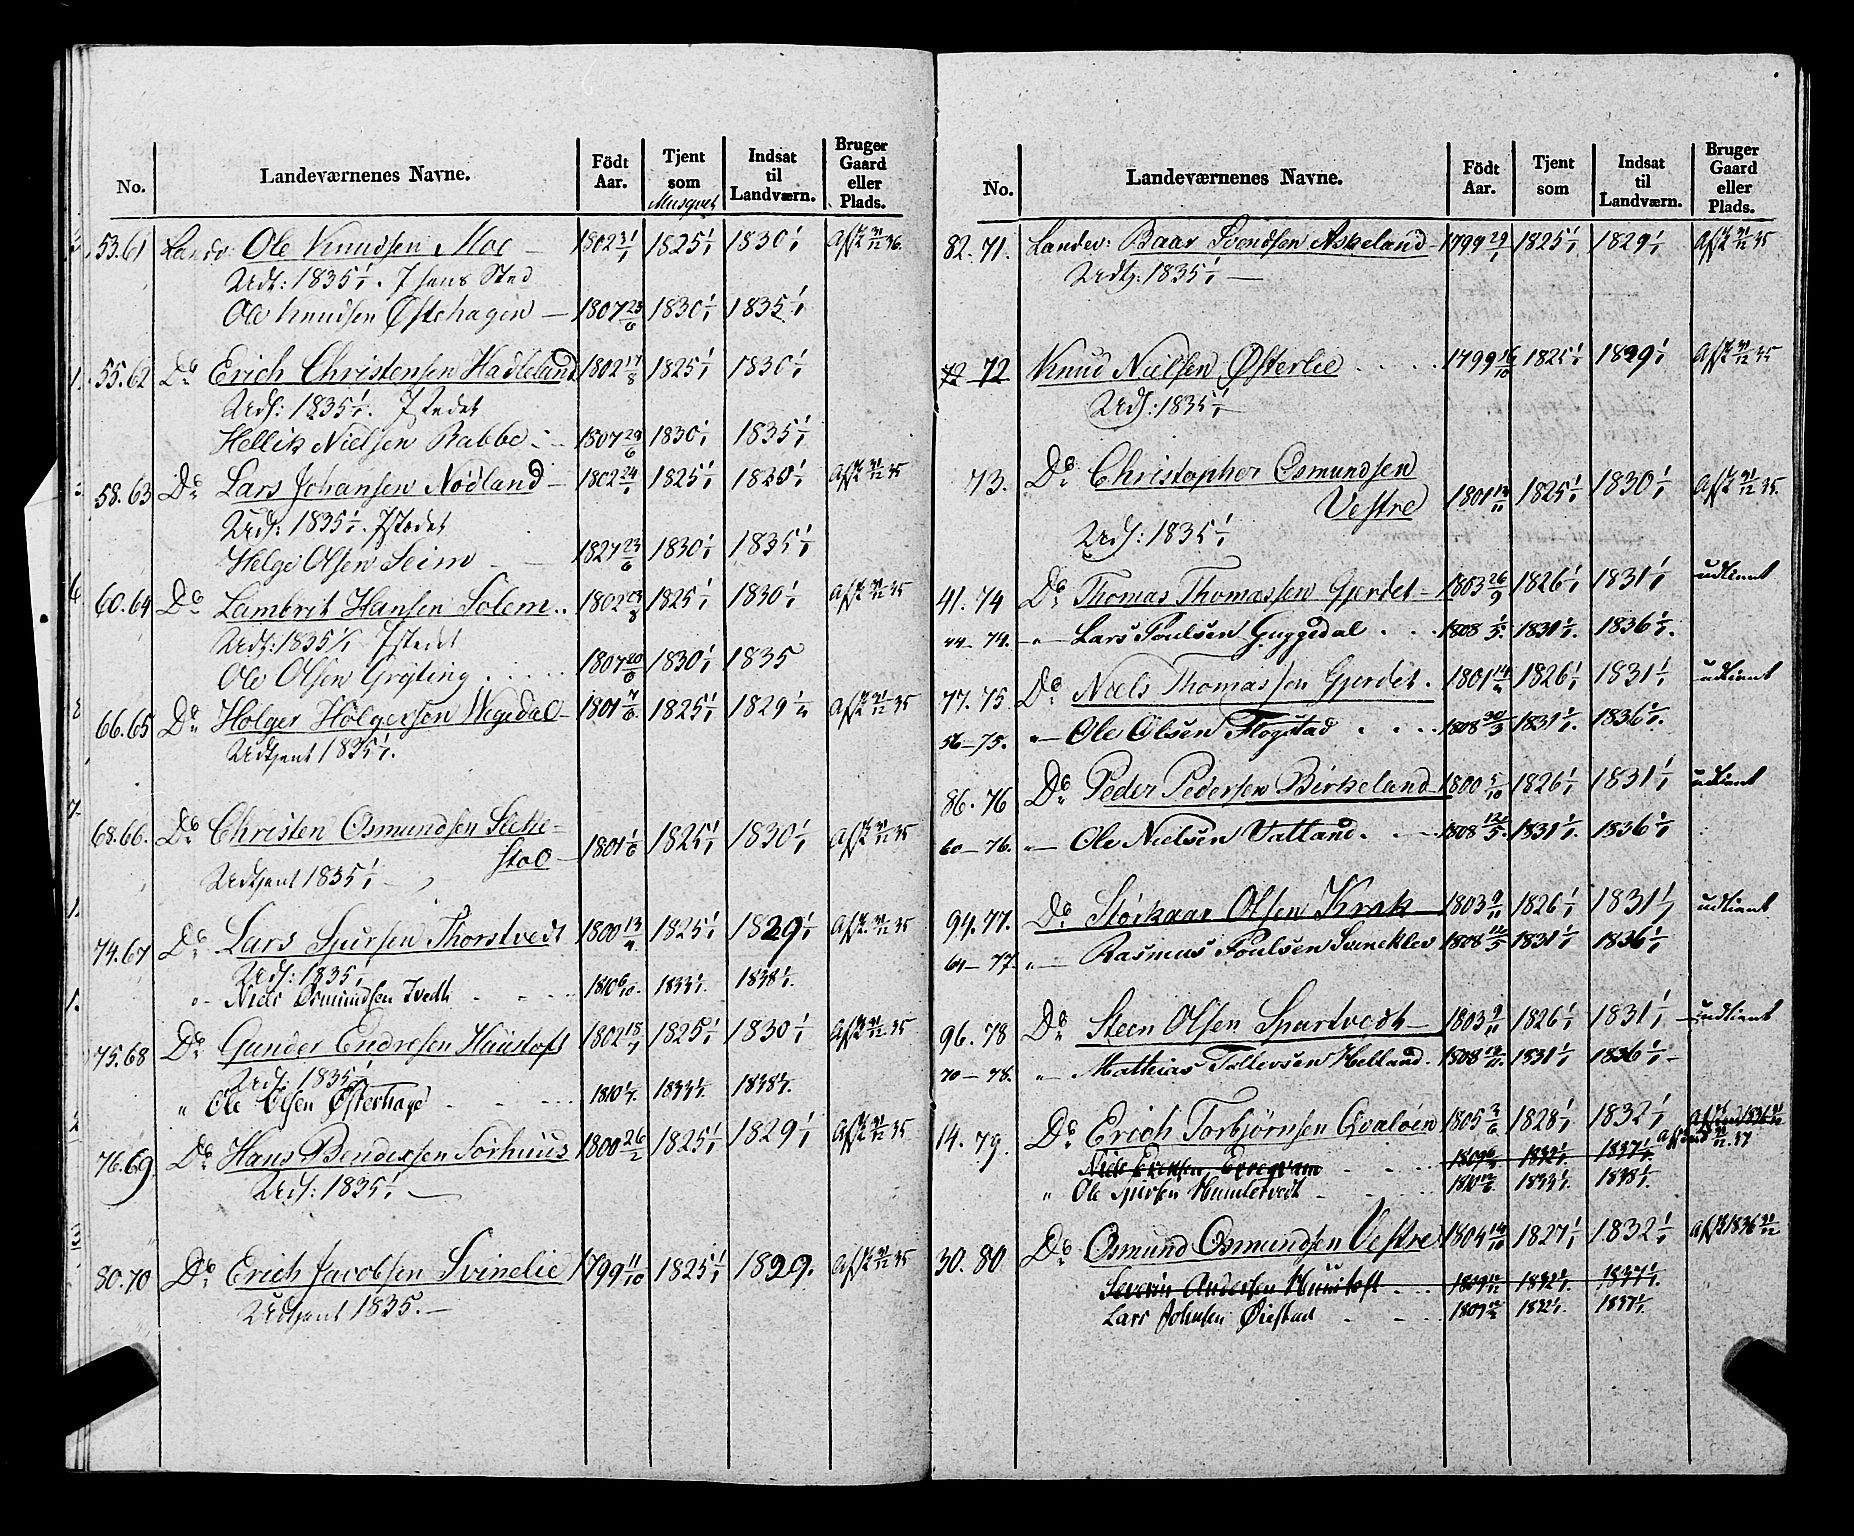 No. Landeværnenes Navne. Födt Aar. Tjent som Musqvet Indsat til Landværn. Bruger Gaard eller Plads.
53.61 Landv: Ole Knudsen Moe 1802 31/1 1825 1/1 1830 1/1 Afsk 31/12 36.
Udt: 1835 1/1. I hans Sted
Ole Knudsen Østehagen 1807 23/6 1830 1/1 1835 1/1
55.62 Do Erich Christensen Hadleland 1802 17/8 1825 1/1 1830 1/1
Udj: 1835 1/1. Istedet
Hellik Nielsen Rabbe 1807 29/6 1830 1/1 1835 1/1
58.63 Do Lars Johansen Nödland 1802 24/1 1825 1/1 1830 1/1 Afsk 31/12 35
Udj: 1835 1/1. Istedet
Helge Olsen Seim 1827 23/6 1830 1/1 1835 1/1
60.64 Do Lambrit Hansen Solem 1802 23/8 1825 1/1 1830 1/1 Afsk 31/12 35
Udj: 1835 1/1 Istedet
Ole Olsen Gröting 1807 20/6 1830 1/1 1835
66.65 Do Holger Holgersen Wegedal 1801 7/6 1825 1/1 1829 1/4 Afsk 31/12 35
Udtjent 1835 1/1.
68.66. Do Christen Osmundsen Slette-
stöe 1801 1/6 1825 1/1 1830 1/1 Afsk 31/12 35
Udtjent 1835 1/1
74.67 Do Lars Sjursen Thorstvedt 1800 13/4 1825 1/1 1829 1/1 Afsk. 31/12 35
Udj: 1835 1/1
" Niels Osmundsen Tvedt 1810 6/10. 1833 1/1. 1838 1/1.
75.68 Do Gunder Endresen Hüüstoft 1802 15/1 1825 1/1 1830 1/1 Afsk 31/12 35
Udj. 1835 1/1
" Ole Olsen Østerhage 1810 1/7. 1833 1/1. 1838 1/1.
76.69 Do Hans Bendixsen Sörhuus 1800 26/2 1825 1/1 1829 1/1 Afsk 31/12 35
Udj: 1835 1/1
80.70 Do Erich Jacobsen Svinelie 1799 11/10 1825 1/1 1829. Afsk 31/12 35
Udtjent 1835.
No. Landeværnenes Navne. Födt Aar. Tjent som Indsat til Landværn. Bruger Gaard eller Plads.
82.71. Landev: Baar Svendsen Askeland 1799 29/1 1825 1/1 1829 1/1 Afsk 31/12 35
Udtj. 1835 1/1
72 72 Knud Nielsen Østerlie 1799 16/10 1825 1/1 1829 1/1 Afsk 31/12 35
Udj: 1835 1/1
73. Do Christopher Osmundsen
Vestre 1801 12/11 1825 1/1 1830 1/1 Afsk 31/12 35.
Udj: 1835 1/1
41.74 Do Thomas Thomassen Gjerdet 1803 26/9 1826 1/1 1831 1/1 udtient
44-74. " Lars Poulsen Guggedal 1808 1/5. 1831 1/1. 1836 1/1.
77.75. Do Niels Thomassen Gjerdet. 1801 14/4 1826 1/1 1831 1/1 udtient
56-75. " Ole Olsen Flogstad 1808 30/3 1831 1/1 1836 1/1.
86.76 Do Peder Pedersen Birkeland 1800 5/10 1826 1/1 1831 1/1 udtient
60-76. " Ole Nielsen Vatland. 1808 12/5. 1831 1/1. 1836 1/1
94.77. Do Störkaar Olsen Krak 1803 9/11 1826 1/1 1831 1/1 udtient
61-77. " Rasmus Poulsen Svineklev 1808 12/5 1831 1/1 1836 1/1
96.78 Do Steen Olsen Spartvedt 1803 9/11 1826 1/1 1831 1/1 udtient
70-78. " Mathias Tollevsen Helland. 1808 12/11. 1831 1/1 1836 1/1
14.79. Do Erich Torbjörnsen Qvalöen 1805 3/6 1828 1/1 1832 1/1 Afskeed 1836 31/12
Niels Ericksen, 1809 6/4 1832 1/1. 1837 1/1. Afskeed 31/12.37
" Ole Sjursen Hundstvedt 1810 12/6. 1833 1/1. 1838 1/1.
30.80 Do Osmund Osmundsen Vestre 1804 14/10 1827 1/1 1832 1/1 Afsk 1836 31/12
Severin Andersen Huustoft 1809 12/12 1832 1/1 1837 1/1.
Lars Johnsen Öiestad 1809 1832 1/1. 1837 1/1